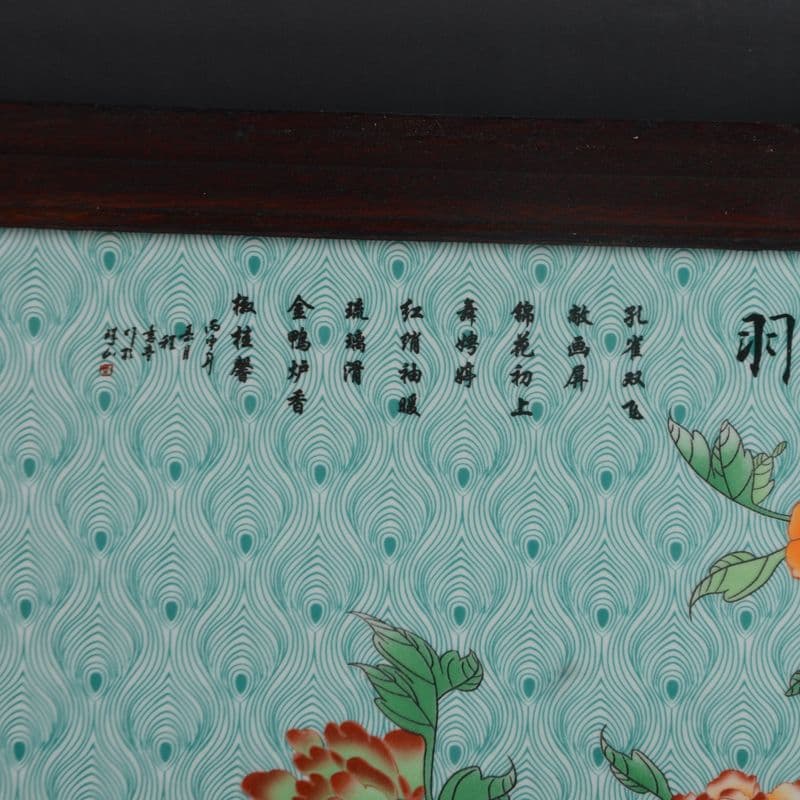 羽
孔雀双飞
敞画屏
锦花初上
舞娉婷
红绡袖暖
琉璃滑
金鸭炉香
椒桂馨
丙申年